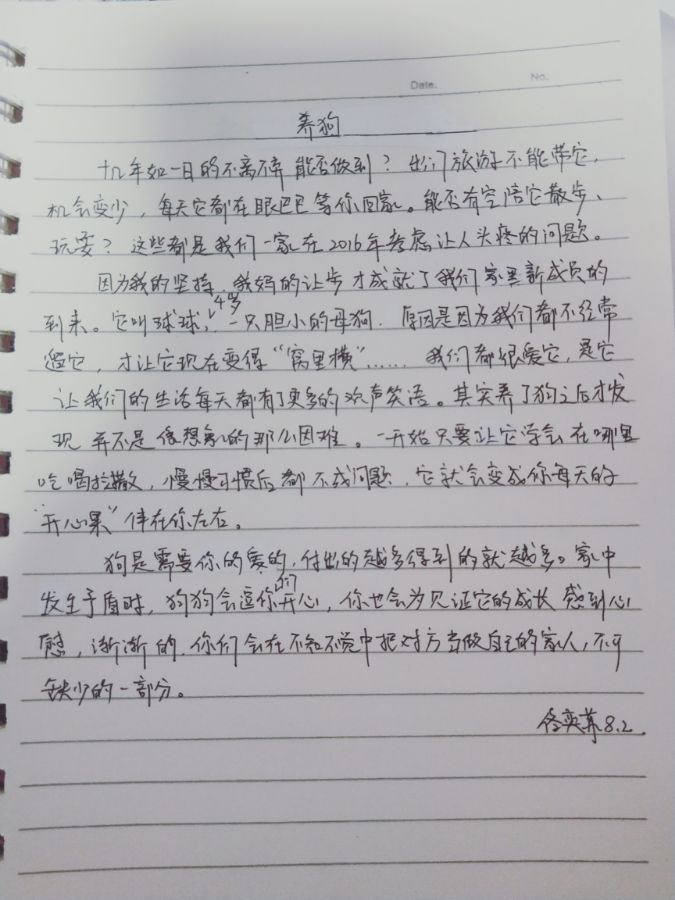 Date.
No.
养狗
十几年如一日的不离不弃 能否做到？出门旅游不能带它，
机会变少，每天它都在眼巴巴等你回家。能否有空陪它散步、
玩耍？这些都是我们一家在2016年考虑让人头疼的问题。
因为我的坚持，我妈的让步才成就了我们家里新成员的
到来。它叫球球，4岁，一只胆小的母狗，原因是因为我们都不经常
遛它，才让它现在变得“窝里横”……我们都很爱它，是它
让我们的生活每天都有了更多的欢声笑语。其实养了狗之后才发
现 并不是像想象的那么困难。一开始只要让它学会在哪里
吃喝拉撒，慢慢习惯后都不成问题，它就会变成你每天的
“开心果”伴在你左右。
狗是需要你的爱的，付出的越多得到的就越多。家中
发生矛盾时，狗狗会逗你们开心，你也会为见证它的成长 感到心
慰，渐渐的，你们会在不知不觉中把对方当做自己的家人，不可
缺少的一部分。
8.2.